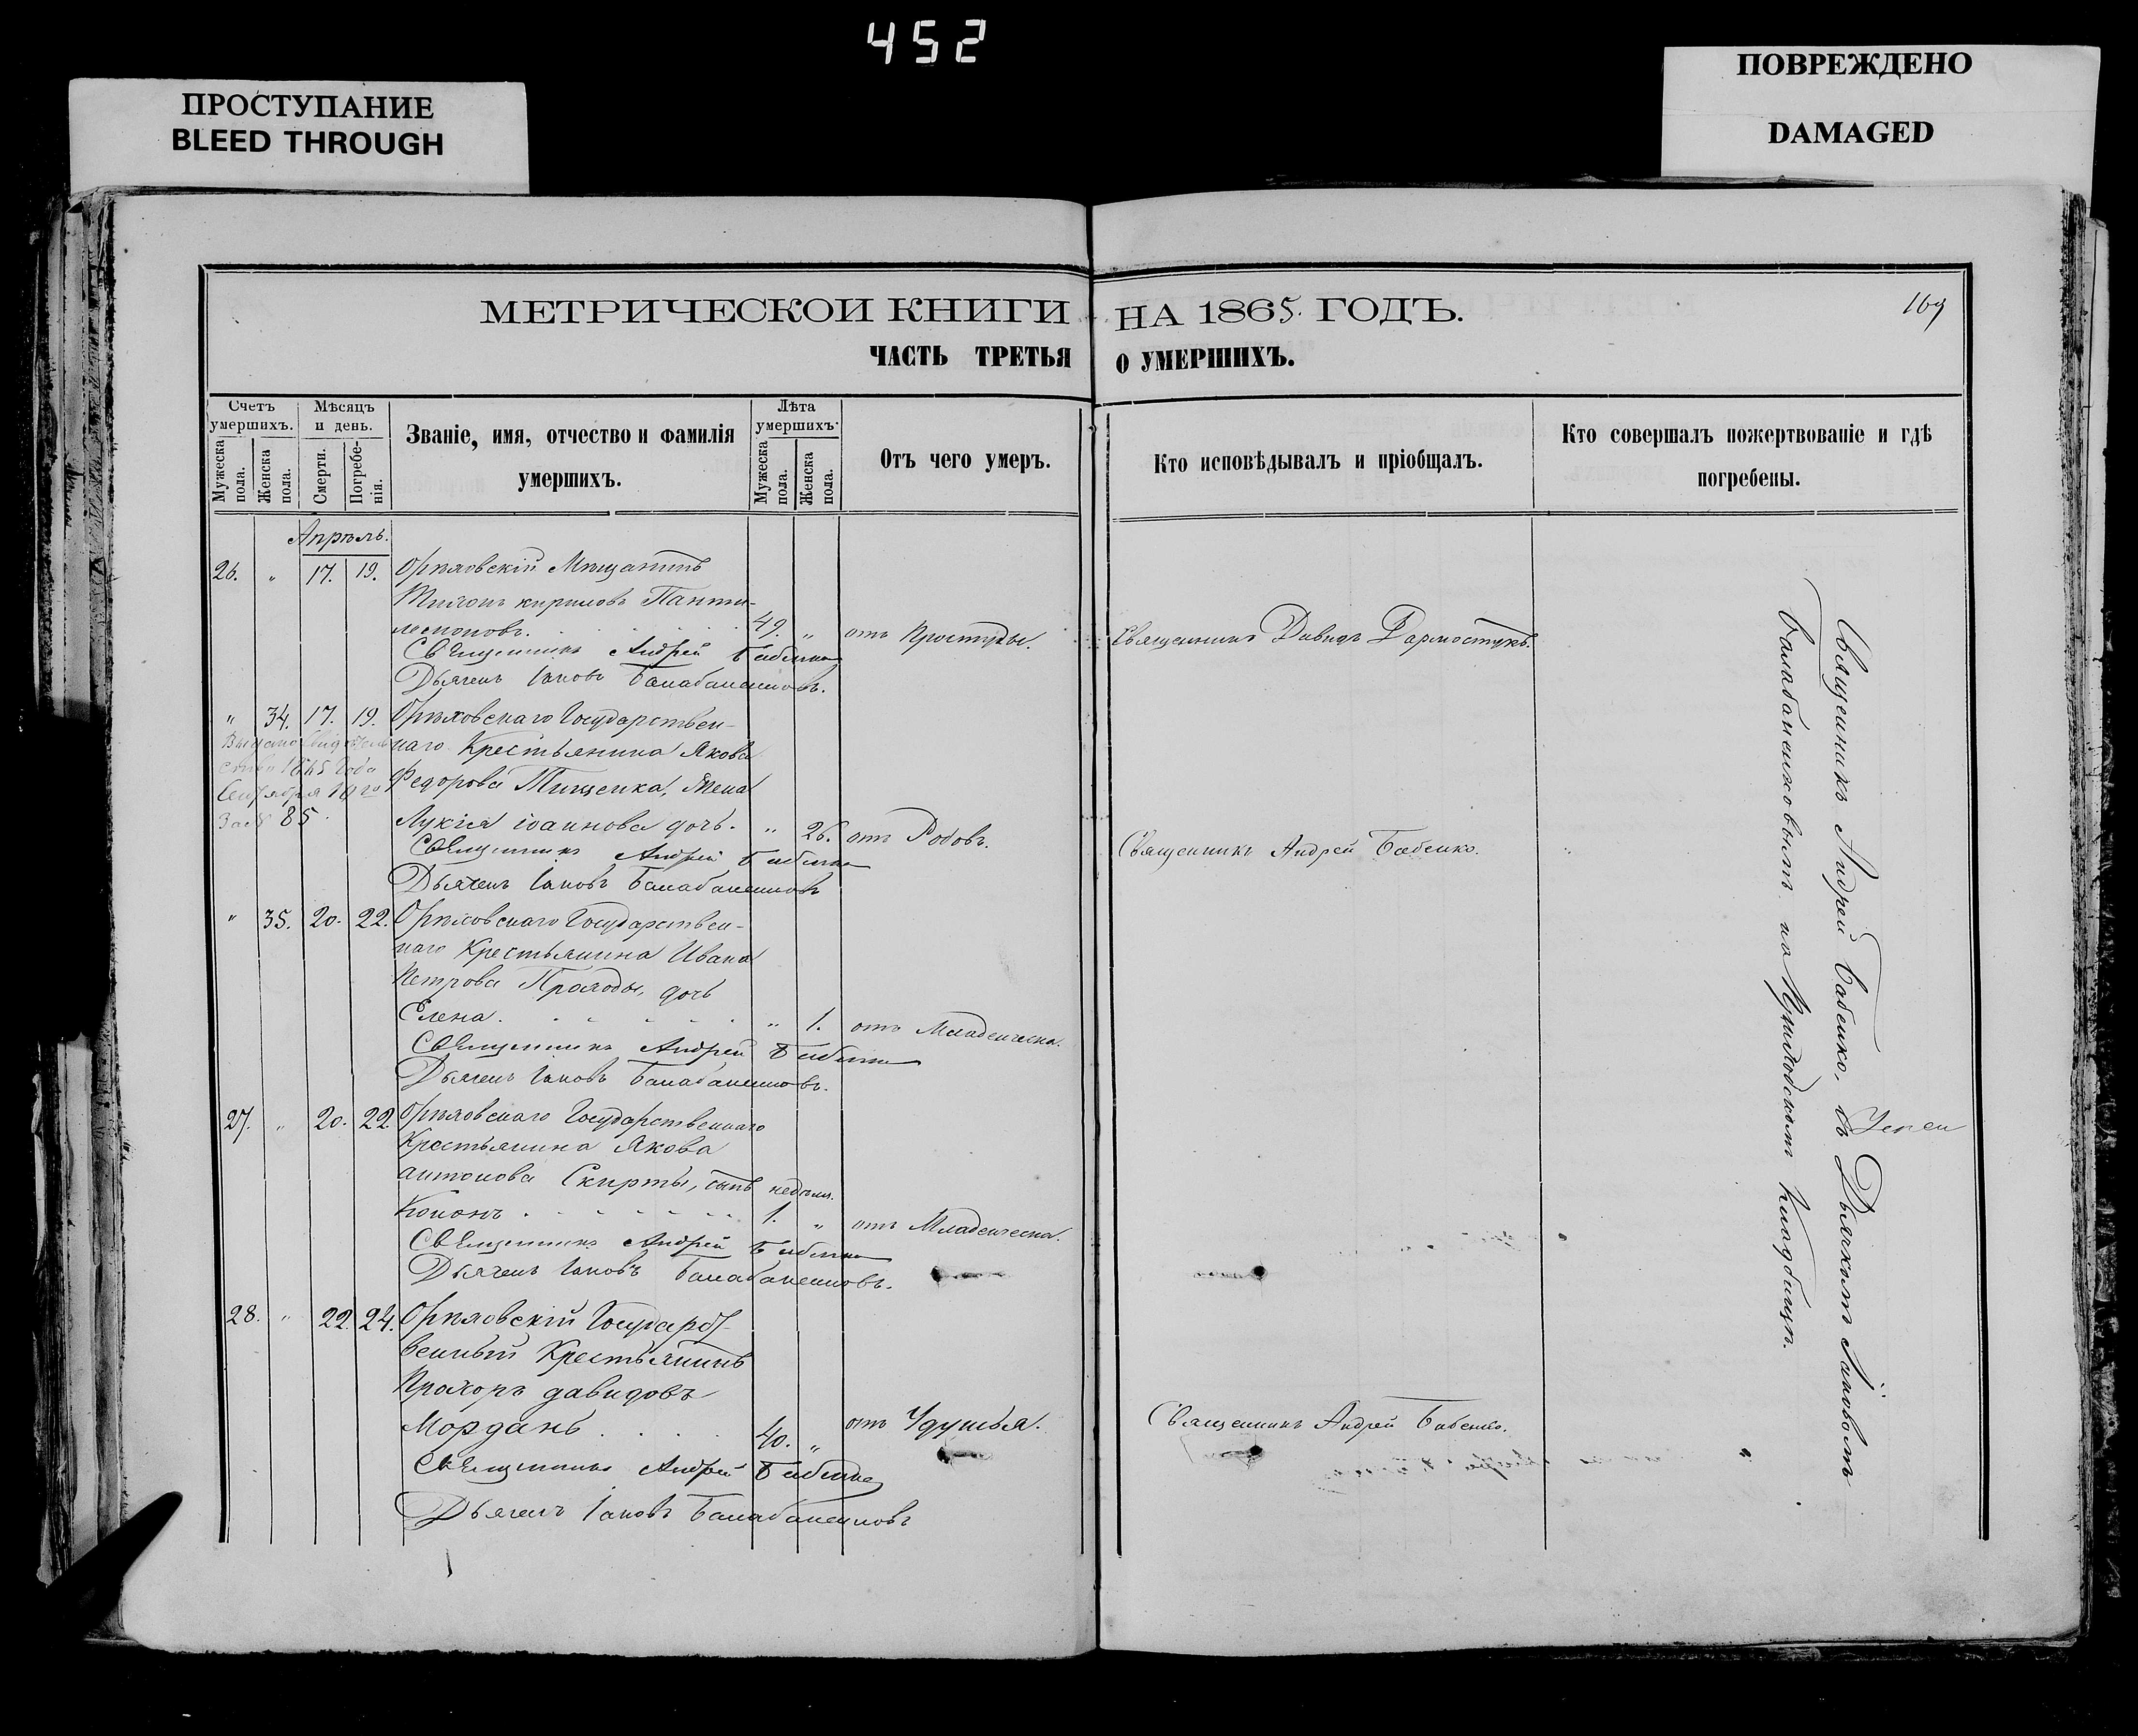 452
ПРОСТУПАНИЕ
BLEED THROUGH
ПОВРЕЖДЕНО
DAMAGED
МЕТРИЧЕСКОИ КНИГИ НА 1865. ГОДЪ.
169
ЧАСТЬ ТРЕТЬЯ О УМЕРШИХЪ.
Счетъ умершихъ.
Мужеска пола.
Женска пола.
Мѣсяцъ и день.
Смерти.
Погребенія.
Званіе, имя, отчество и фамилія
умершихъ.
Лѣта умершихъ.
Мужеска пола.
Женска пола.
Отъ чего умеръ.
Кто исповѣдывалъ и пріобщалъ.
Кто совершалъ пожертвованіе и гдѣ
погребены.
Апрѣль.
26. „ 17. 19. Орѣховскій Мѣщанинъ
Кириловъ Панти-
лемоновъ. 49. „ отъ Простуды. Священникъ Давидъ
Священникъ Андрей Бабенко
Дьячекъ Іаковъ Балабаненковъ.
„ 34. 17. 19. Орѣховскаго Государствен-
наго Крестьянина Якова
Федорова Тищенка, Жена
Лукія Іоаннова дочь. „ 26. отъ Родовъ. Священникъ Андрей Бабенко.
Выдано свидѣтель
ство 1865 года
Сентября 19го
За № 85
Священникъ Андрей Бабенко
Дьячекъ Іаковъ Балабаненковъ
„ 35. 20. 22. Орѣховскаго Государствен-
наго Крестьянина Ивана
Петрова дочь
Елена. „ 1. отъ Младенческа.
Священникъ Андрей Бабенко
Дьячекъ Іаковъ Балабаненковъ.
27. „ 20. 22. Орѣховскаго Государственнаго
Крестьянина Якова
Антонова Скирты, сынъ недѣли.
Кононъ 1. „ отъ Младенческа.
Священникъ Андрей Бабенко
Дьячекъ Іаковъ Балабаненковъ.
28. „ 22. 24. Орѣховскій Государст-
венный Крестьянинъ
Прохоръ Давидовъ
Морданъ 40. „ отъ Удушья. Священникъ Андрей Бабенко.
Священникъ Андрей Бабенко
Дьячекъ Іаковъ Балабаненковъ
Священникъ Андрей Бабенко, съ Дьячкомъ Іаковомъ
Балабаненковымъ на Кладбищѣ.